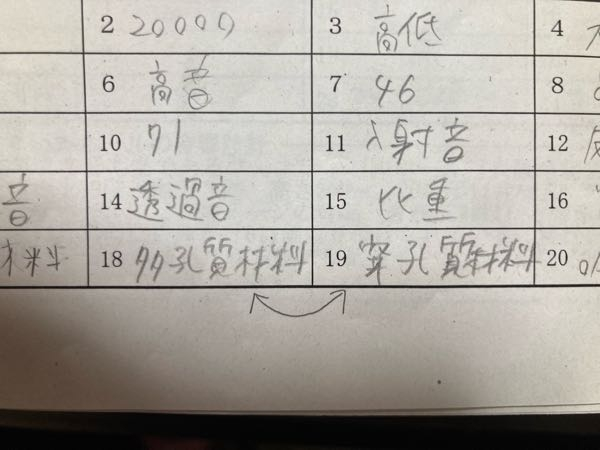 2 20000 3 高低 4
6 高音 7 46 8
10 71 11 入射音 12
音 14 透過音 15 比重 16
材料 18 多孔質材料 19 穿孔質材料 20